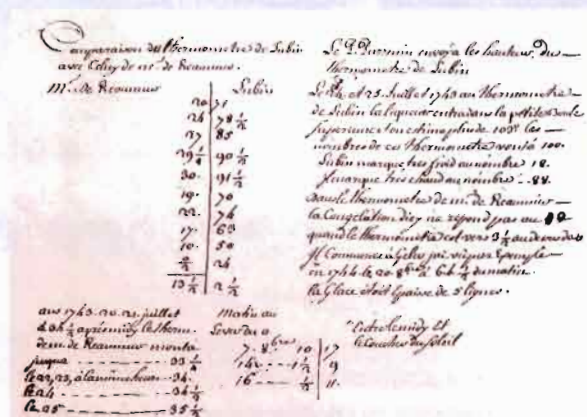 Comparaison du thermometre de Lubin
avec Celuy de mr. de Reaumur.
Mr. De Reaumur Lubin
20 71
24 78 1/2
27 85
29 1/4 90 1/2
30. 91 1/2
19. 70
22. 74
17. 65
10. 50
24
13 1/2 2 1/2
aux 1743. 20. 21. juillet
a 3h 1/2 apres midy le therm.
de m. de Reaumur monta
jusqua 33 1/4
le 22, 23, a la mime heure 34.
le 24 34 1/2
le 25 35 1/2
matin au
lever du
7. 8bre 10 17
16 1 1/2 9
16 1/2 11.
Le P. envoya les hauteurs du
thermometre de Lubin
Le 24 et 25 Juillet 1743 au thermometre
de Lubin la liqueur entra dans la petite boule
superieure lon estime plus de 100 les
nombres de ces thermometre vont a 100.
Lubin marque tres froid au nombre 18.
Il marque tres chaud au nombre 88.
dans le thermometre de m. de Reaumur
la Congelation dicy ne repond pas au
quand le thermometre est vers 3 1/2 au dessus de 0
Il Commence a Geler jai vu par Exemple
en 1744 le 20 8bre a 6h 1/2 du matin.
la Glace etoit Epaisse de 5 lignes.
Entre le midy et
le Coucher du soleil